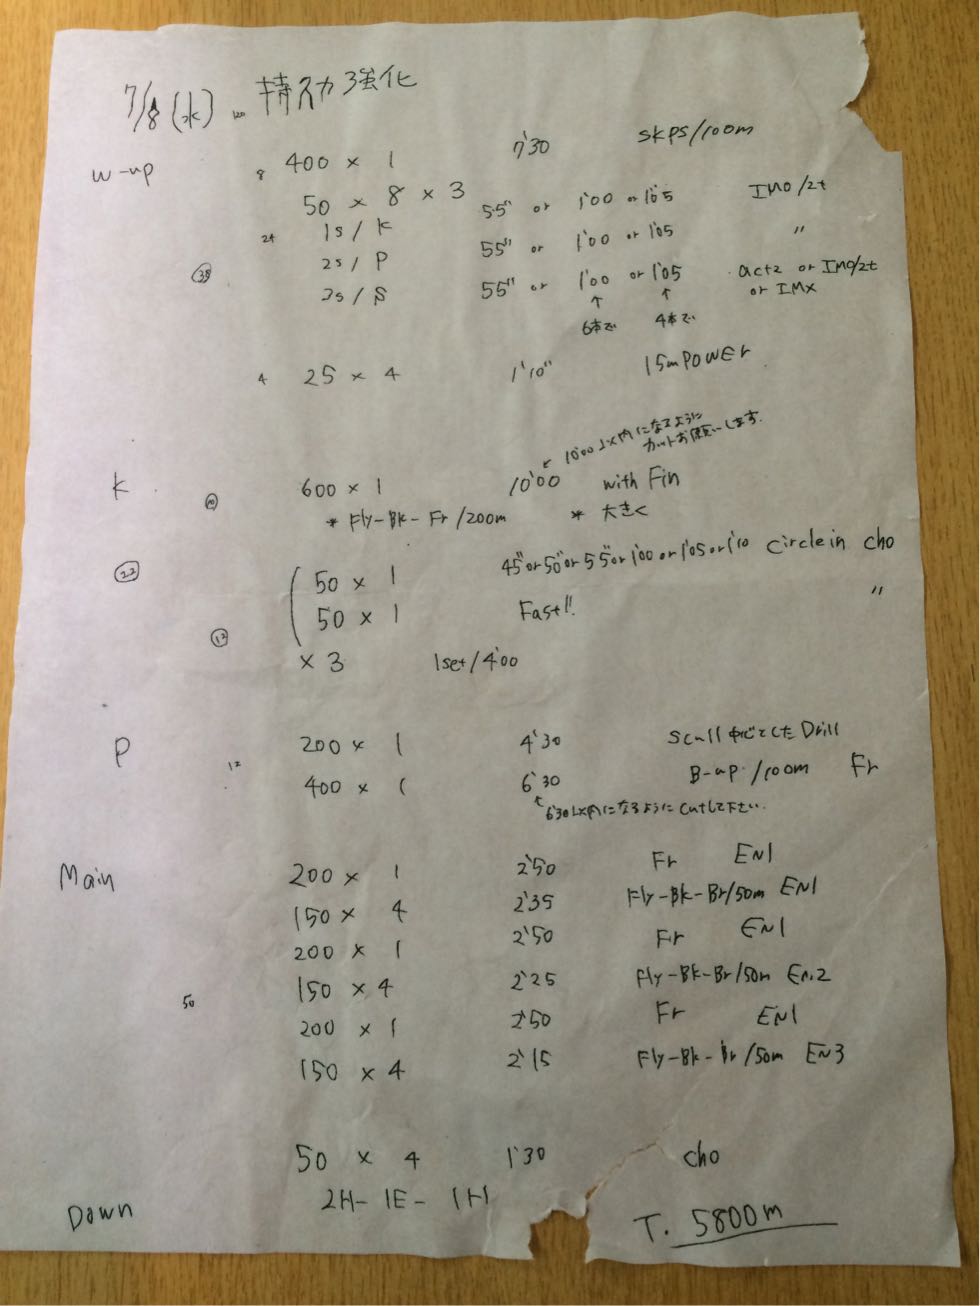 7/8(水) 120 精神力強化
w-up 8 400 × 1 7'30 SKPS/100m
50 × 8 × 3 55" or 1'00 or 1'05 IMO/2t
24 1s / K 55" or 1'00 or 1'05 〃
38 2s / P
3s / S 55" or 1'00 or 1'05 act2 or IMO/2t
or IMX
↑ ↑
6本で 4本で
4 25 × 4 1'10" 15m POWEr
10'00以内になるように
カットお願いします.
K 10 600 × 1 10'00 with Fin
* Fly-Bk-Fr/200m * 大きく
22 50 × 1 45" or 50" or 55" or 1'00 or 1'05 or 1'10 Circle in cho
50 × 1 Fast!! 〃
12 × 3 1set/4'00
P 200 × 1 4'30 Scull 中心としたDrill
12 400 × 1 6'30 B-up /100m Fr
6'30以内になるようにcutして下さい.
Main 200 × 1 2'50 Fr EN1
150 × 4 2'35 Fly-Bk-Br/50m EN1
200 × 1 2'50 Fr EN1
50 150 × 4 2'25 Fly-Bk-Br/50m EN2
200 × 1 2'50 Fr EN1
150 × 4 2'15 Fly-Bk-Br/50m EN3
50 × 4 1'30 cho
2H-1E-1H
Down T. 5800m